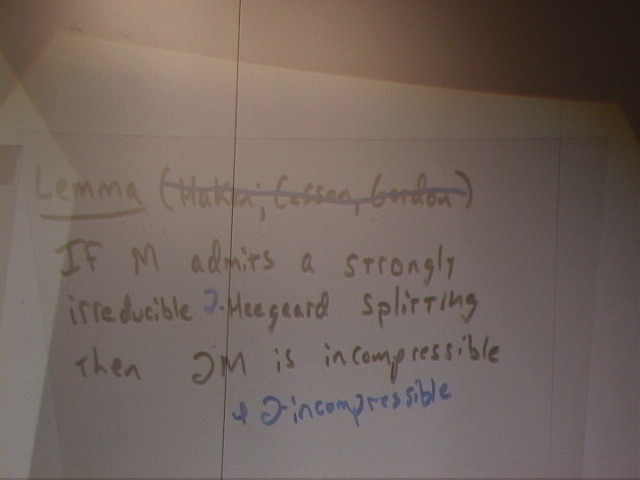 Lemma (Haken; Casson, Gordon)
IF M admits a strongly
irreducible ∂-Heegaard splitting
then ∂M is incompressible
& ∂-incompressible